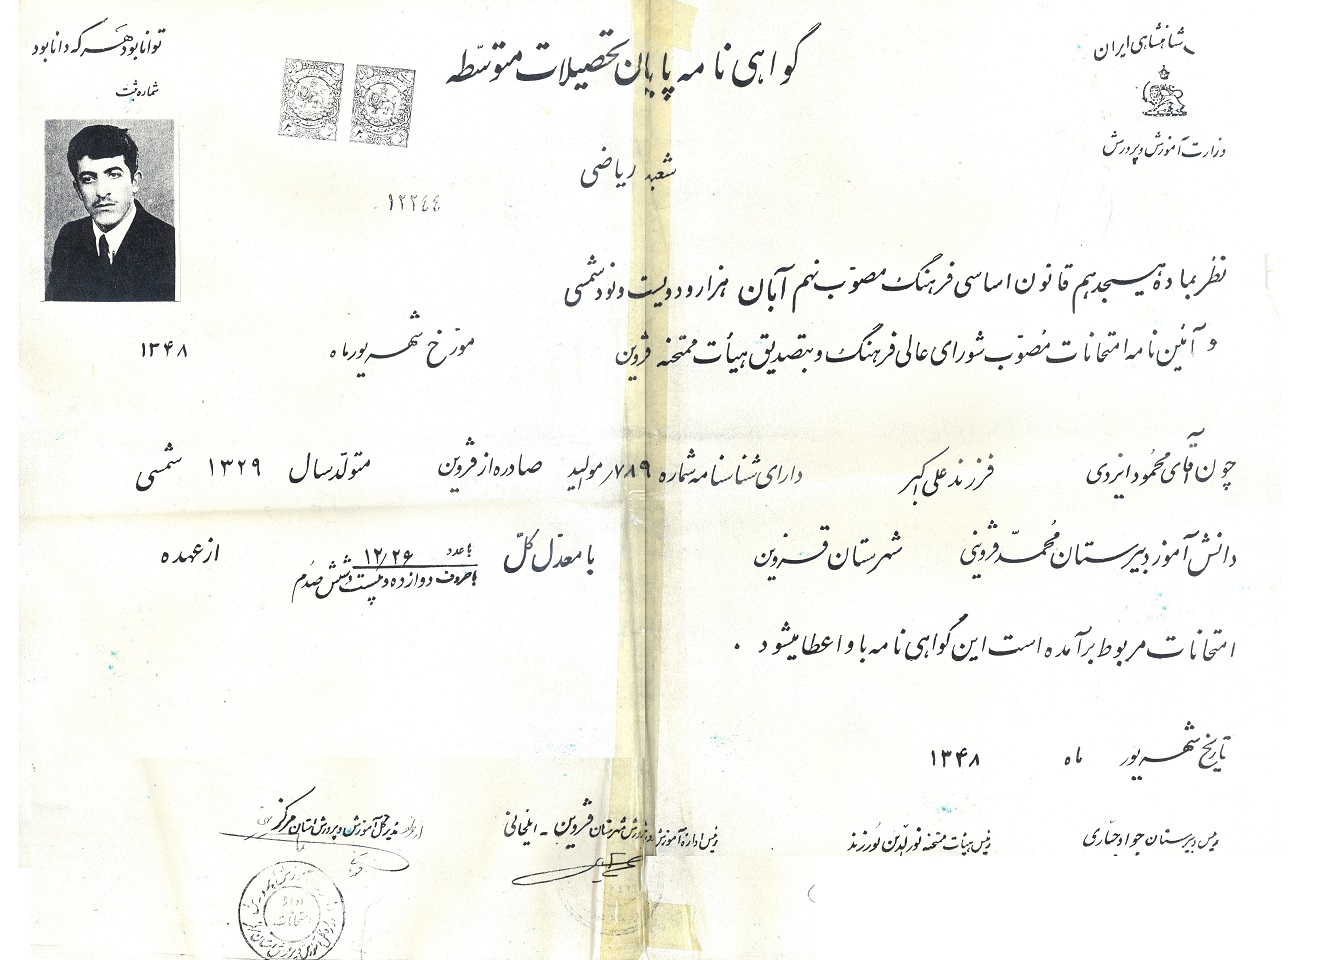 شاهنشاهی ایران
وزارت آموزش و پرورش
گواهی نامه پایان تحصیلات متوسّطه
شعبه ریاضی
۱۲۲۴۴
توانا بود هر که دانا بود
شماره ثبت
نظر بماده هیجدهم قانون اساسی فرهنگ مصوّب نهم آبان هزار و دویست و نود شمسی
و آئین نامه امتحانات مصوّب شورای عالی فرهنگ و بتصدیق هیأت ممتحنه قزوین مورّخ شهریور ماه ۱۳۴۸
چون آقای محمود ایزدی فرزند علی اکبر دارای شناسنامه شماره ۷۸۹ موالید صادره از قزوین متولّد سال ۱۳۲۹ شمسی
دانش آموز دبیرستان محمّد قزوینی شهرستان قزوین با معدّل کلّ با عدد ۱۲/۲۶ با حروف دوازده و بیست و شش صدم از عهده
امتحانات مربوط برآمده است این گواهی نامه باو اعطا میشود .
تاریخ شهریور ماه ۱۳۴۸
رئیس دبیرستان جواد جبّاری
رئیس هیأت ممتحنه نورالدّین نورزند
رئیس اداره آموزش و پرورش شهرستان قزوین - ایلخانی
مدیر کل آموزش و پرورش استان مرکزی
اداره امتحانات